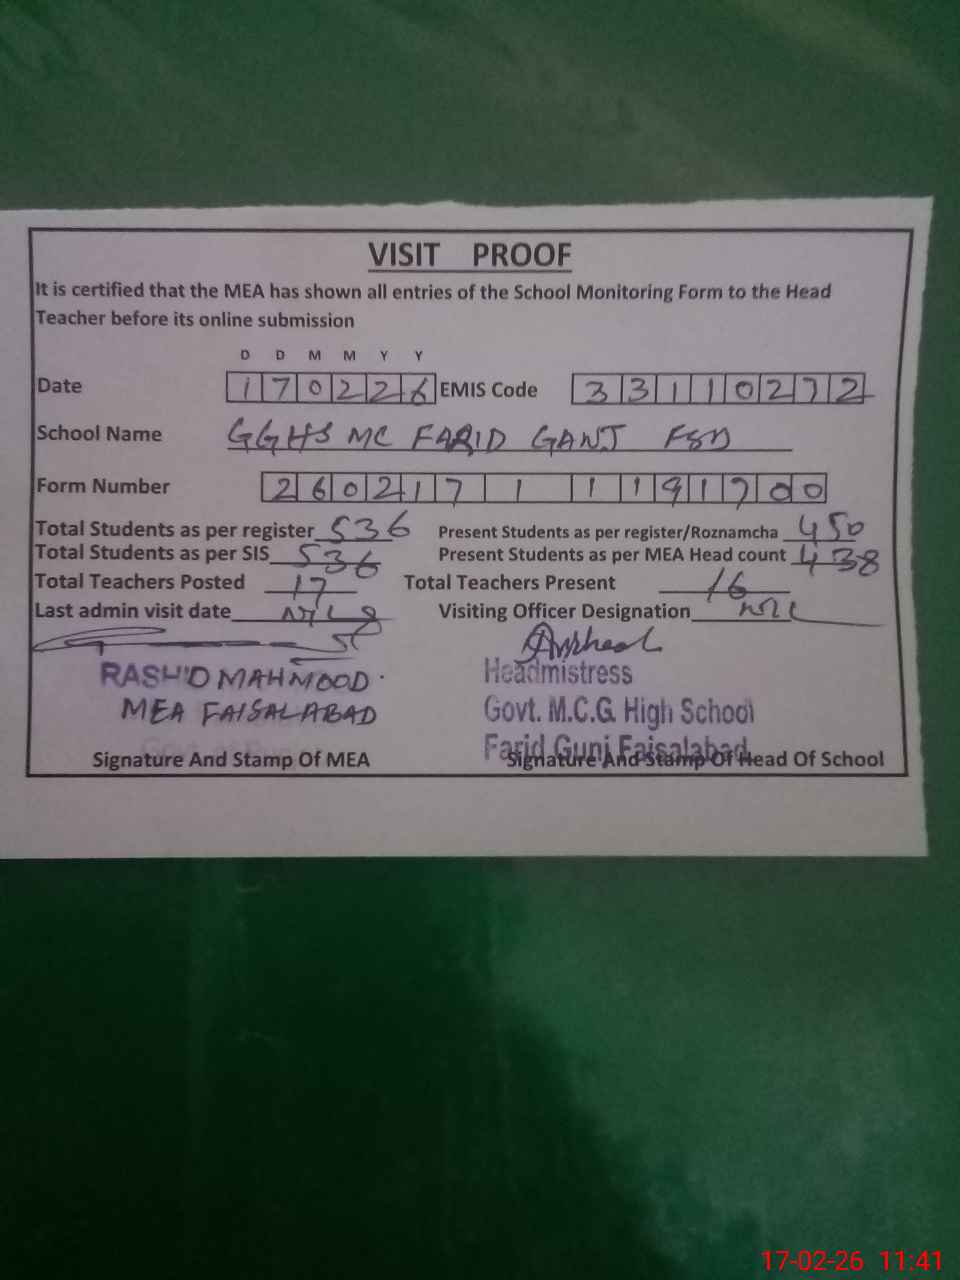 VISIT PROOF
It is certified that the MEA has shown all entries of the School Monitoring Form to the Head
Teacher before its online submission
D D M M Y Y
Date 170226 EMIS Code 33110272
School Name GGHS MC FARID GANJ FSD
Form Number 26021711191700
Total Students as per register 536 Present Students as per register/Roznamcha 450
Total Students as per SIS 536 Present Students as per MEA Head count 438
Total Teachers Posted 17 Total Teachers Present 16
Last admin visit date Visiting Officer Designation
RASHID MAHMOOD.
MEA FAISALABAD
Signature And Stamp Of MEA
Headmistress
Govt. M.C.G. High School
Farid Gunj Faisalabad
Signature And Stamp Of Head Of School
17-02-26 11:41